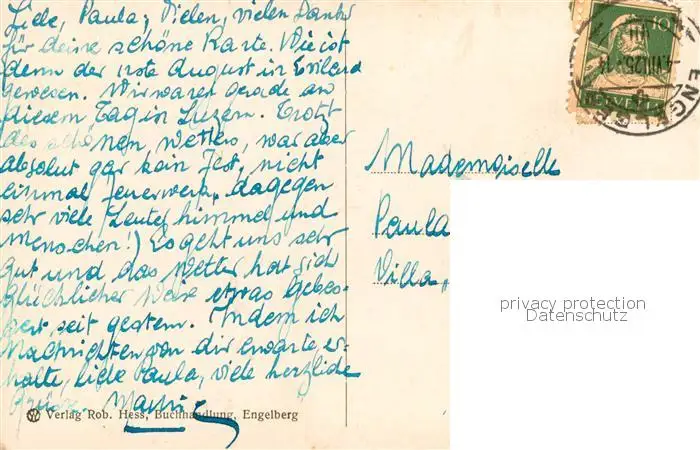 Liebe, Paula; Vielen, vielen Dank
für deine schöne Karte. Wie ist
denn der erste August in
gewesen. Wir waren gerade an
diesem Tag in Luzern. Trotz
des schönen, Wetters, war aber
absolut gar kein Fest, nicht
einmal Feuerwerk, dagegen
sehr viele Leute (Himmel und
Menschen!) Es geht uns sehr
gut und das Wetter hat sich
glücklicher Weise etwas gebes-
sert seit gestern. Indem ich
Nachrichten von dir erwarte, er-
halte, liebe Paula, viele herzliche
Grüsse.
Verlag Rob. Hess, Buchhandlung, Engelberg
10
HELVETIA
ENGELBERG
4.VIII.25.
Mademoiselle
Paula
Villa
privacy protection
Datenschutz